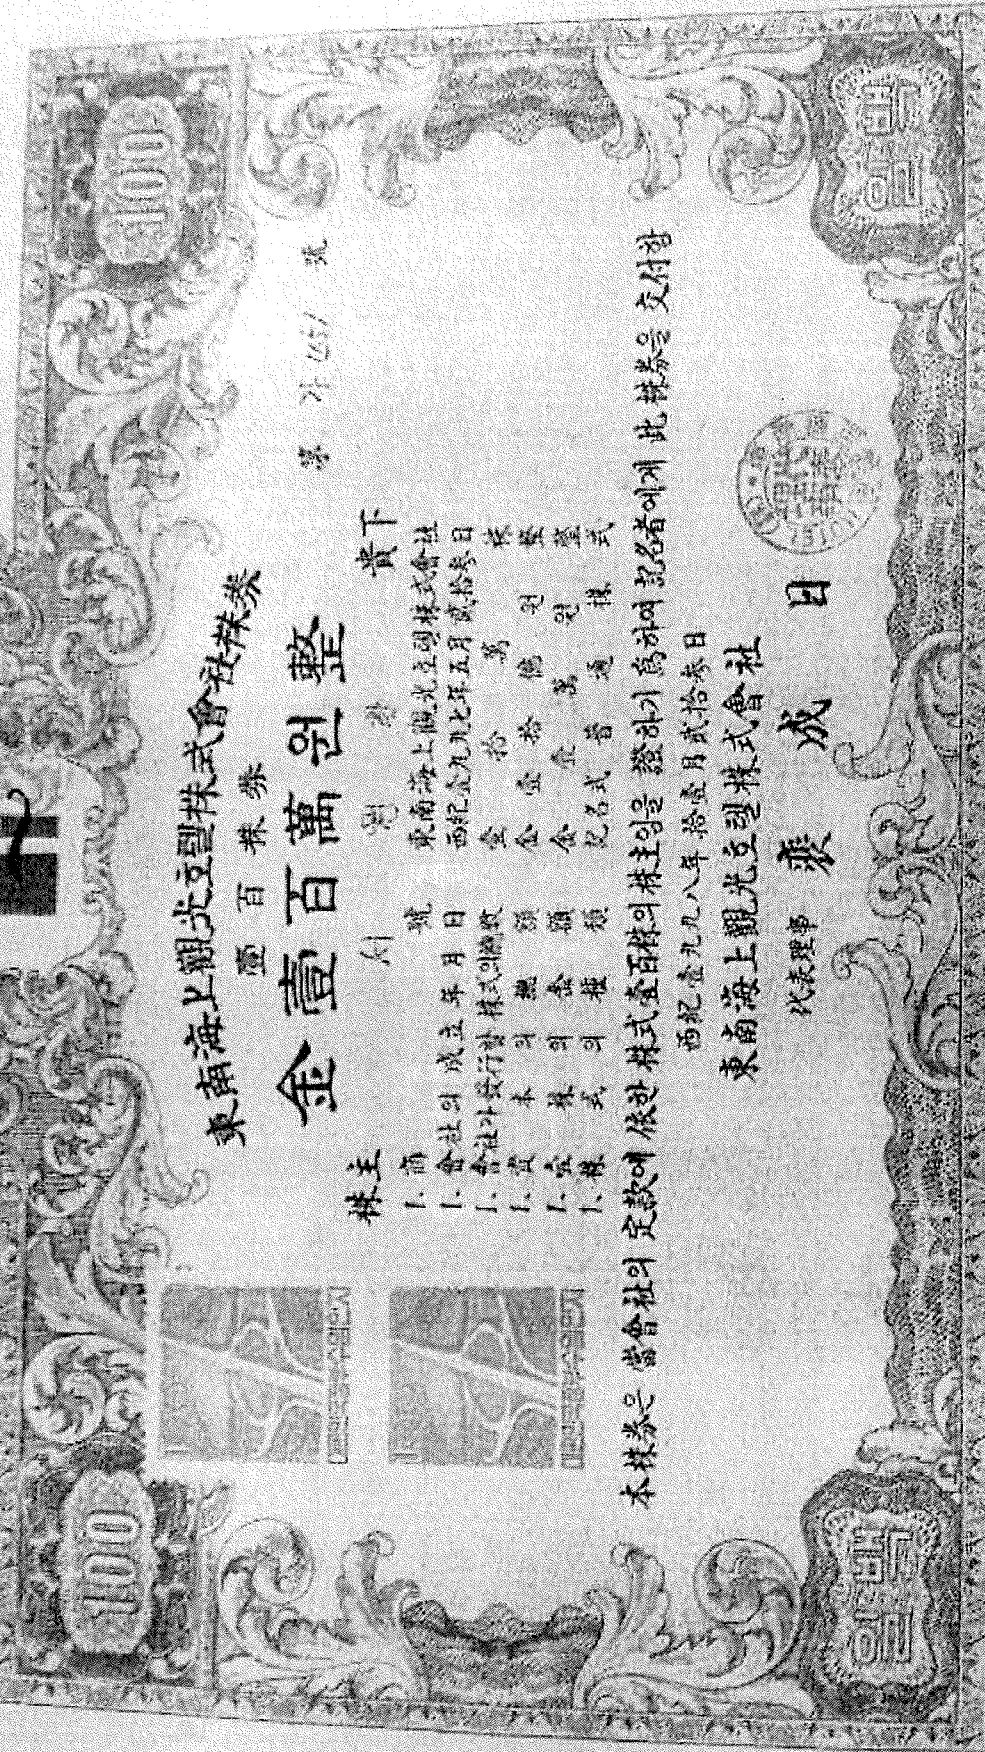 100
100
東南海上観光호텔株式會社株券
壹百株券
金壹百萬원整
第 가 號
株主 貴下
1. 商號 東南海上観光호텔株式會社
1. 會社의 成立年月日 西紀壹九九七年五月貳拾参日
1. 會社가 發行할 株式의總數 金拾萬株
1. 資本의 總額 金壹拾億원整
1. 壹株의 金額 金壹萬원整
1. 株式의 種類 記名式普通株式
本株券은 當會社의 定款에 依한 株式壹百株의株主임을 證하기 爲하여 記名者에게 此 株券을 交付함
西紀壹九九八年拾壹月貳拾参日
東南海上観光호텔株式會社
代表理事 裵成日
수입인지
수입인지
보통
보통